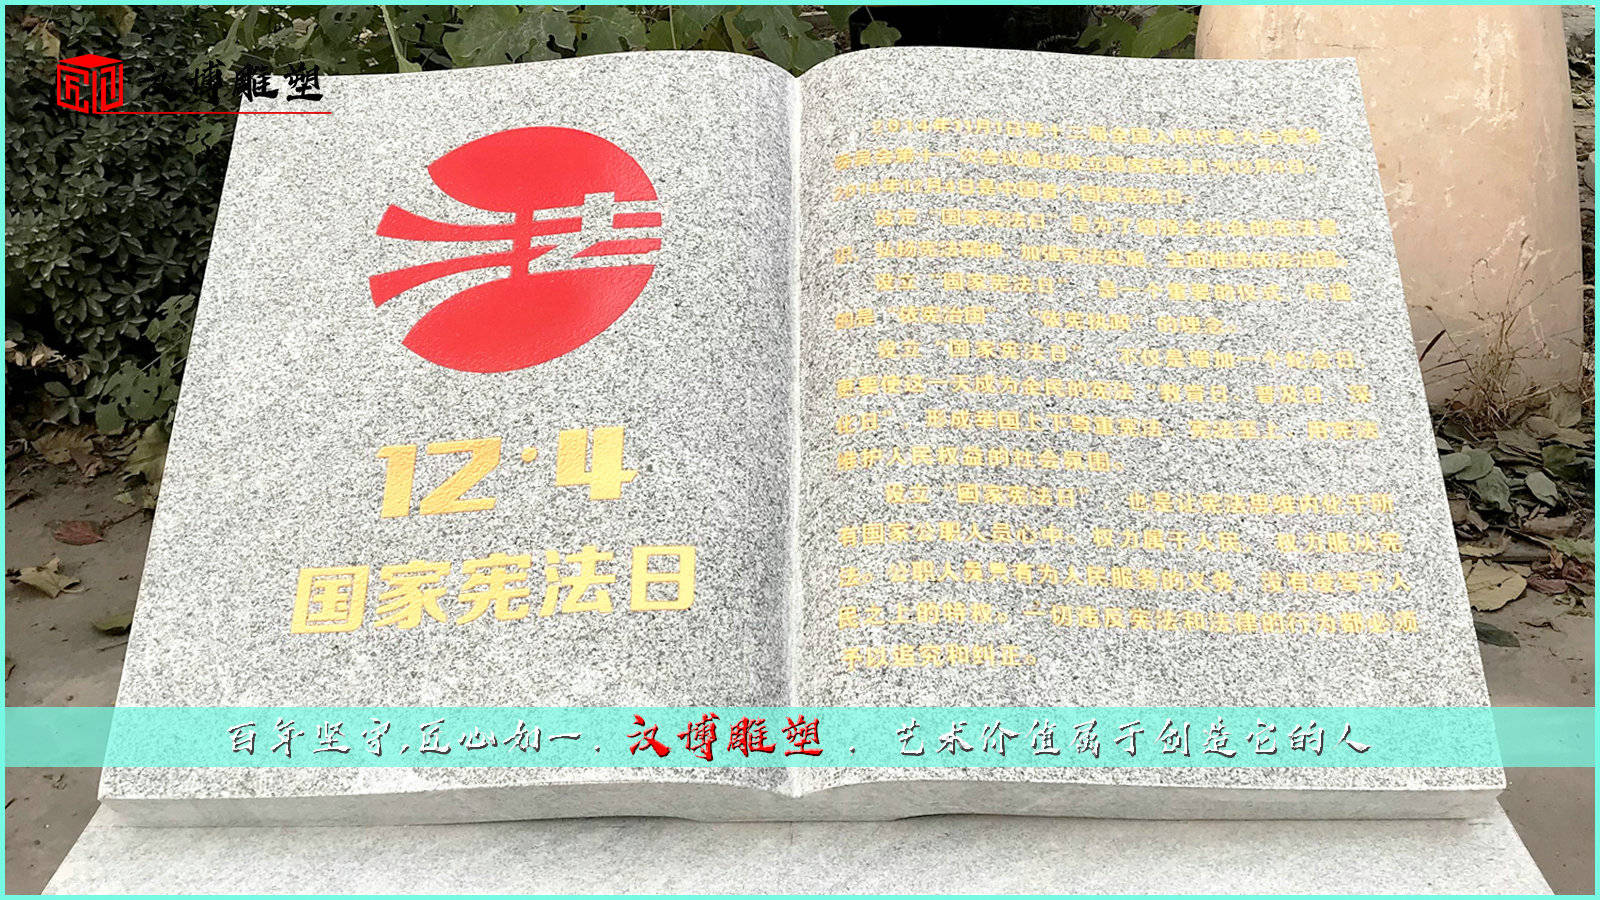 汉博雕塑
12·4
国家宪法日
2014年11月1日第十二届全国人民代表大会常务
委员会第十一次会议通过设立国家宪法日为12月4日。
2014年12月4日是中国首个国家宪法日。
设定“国家宪法日”是为了增强全社会的宪法意
识、弘扬宪法精神、加强宪法实施、全面推进依法治国。
设立“国家宪法日”,是一个重要的仪式,传递
的是“依宪治国”、“依宪执政”的理念。
设立“国家宪法日”,不仅是增加一个纪念日,
更要使这一天成为全民的宪法“教育日、普及日、深
化日”,形成举国上下尊重宪法、宪法至上、用宪法
维护人民权益的社会氛围。
设立“国家宪法日”,也是让宪法思维内化于所
有国家公职人员心中。权力属于人民,权力服从宪
法。公职人员只有为人民服务的义务,没有凌驾于人
民之上的特权。一切违反宪法和法律的行为都必须
予以追究和纠正。
百年坚守,匠心如一.汉博雕塑.艺术价值属于创造它的人